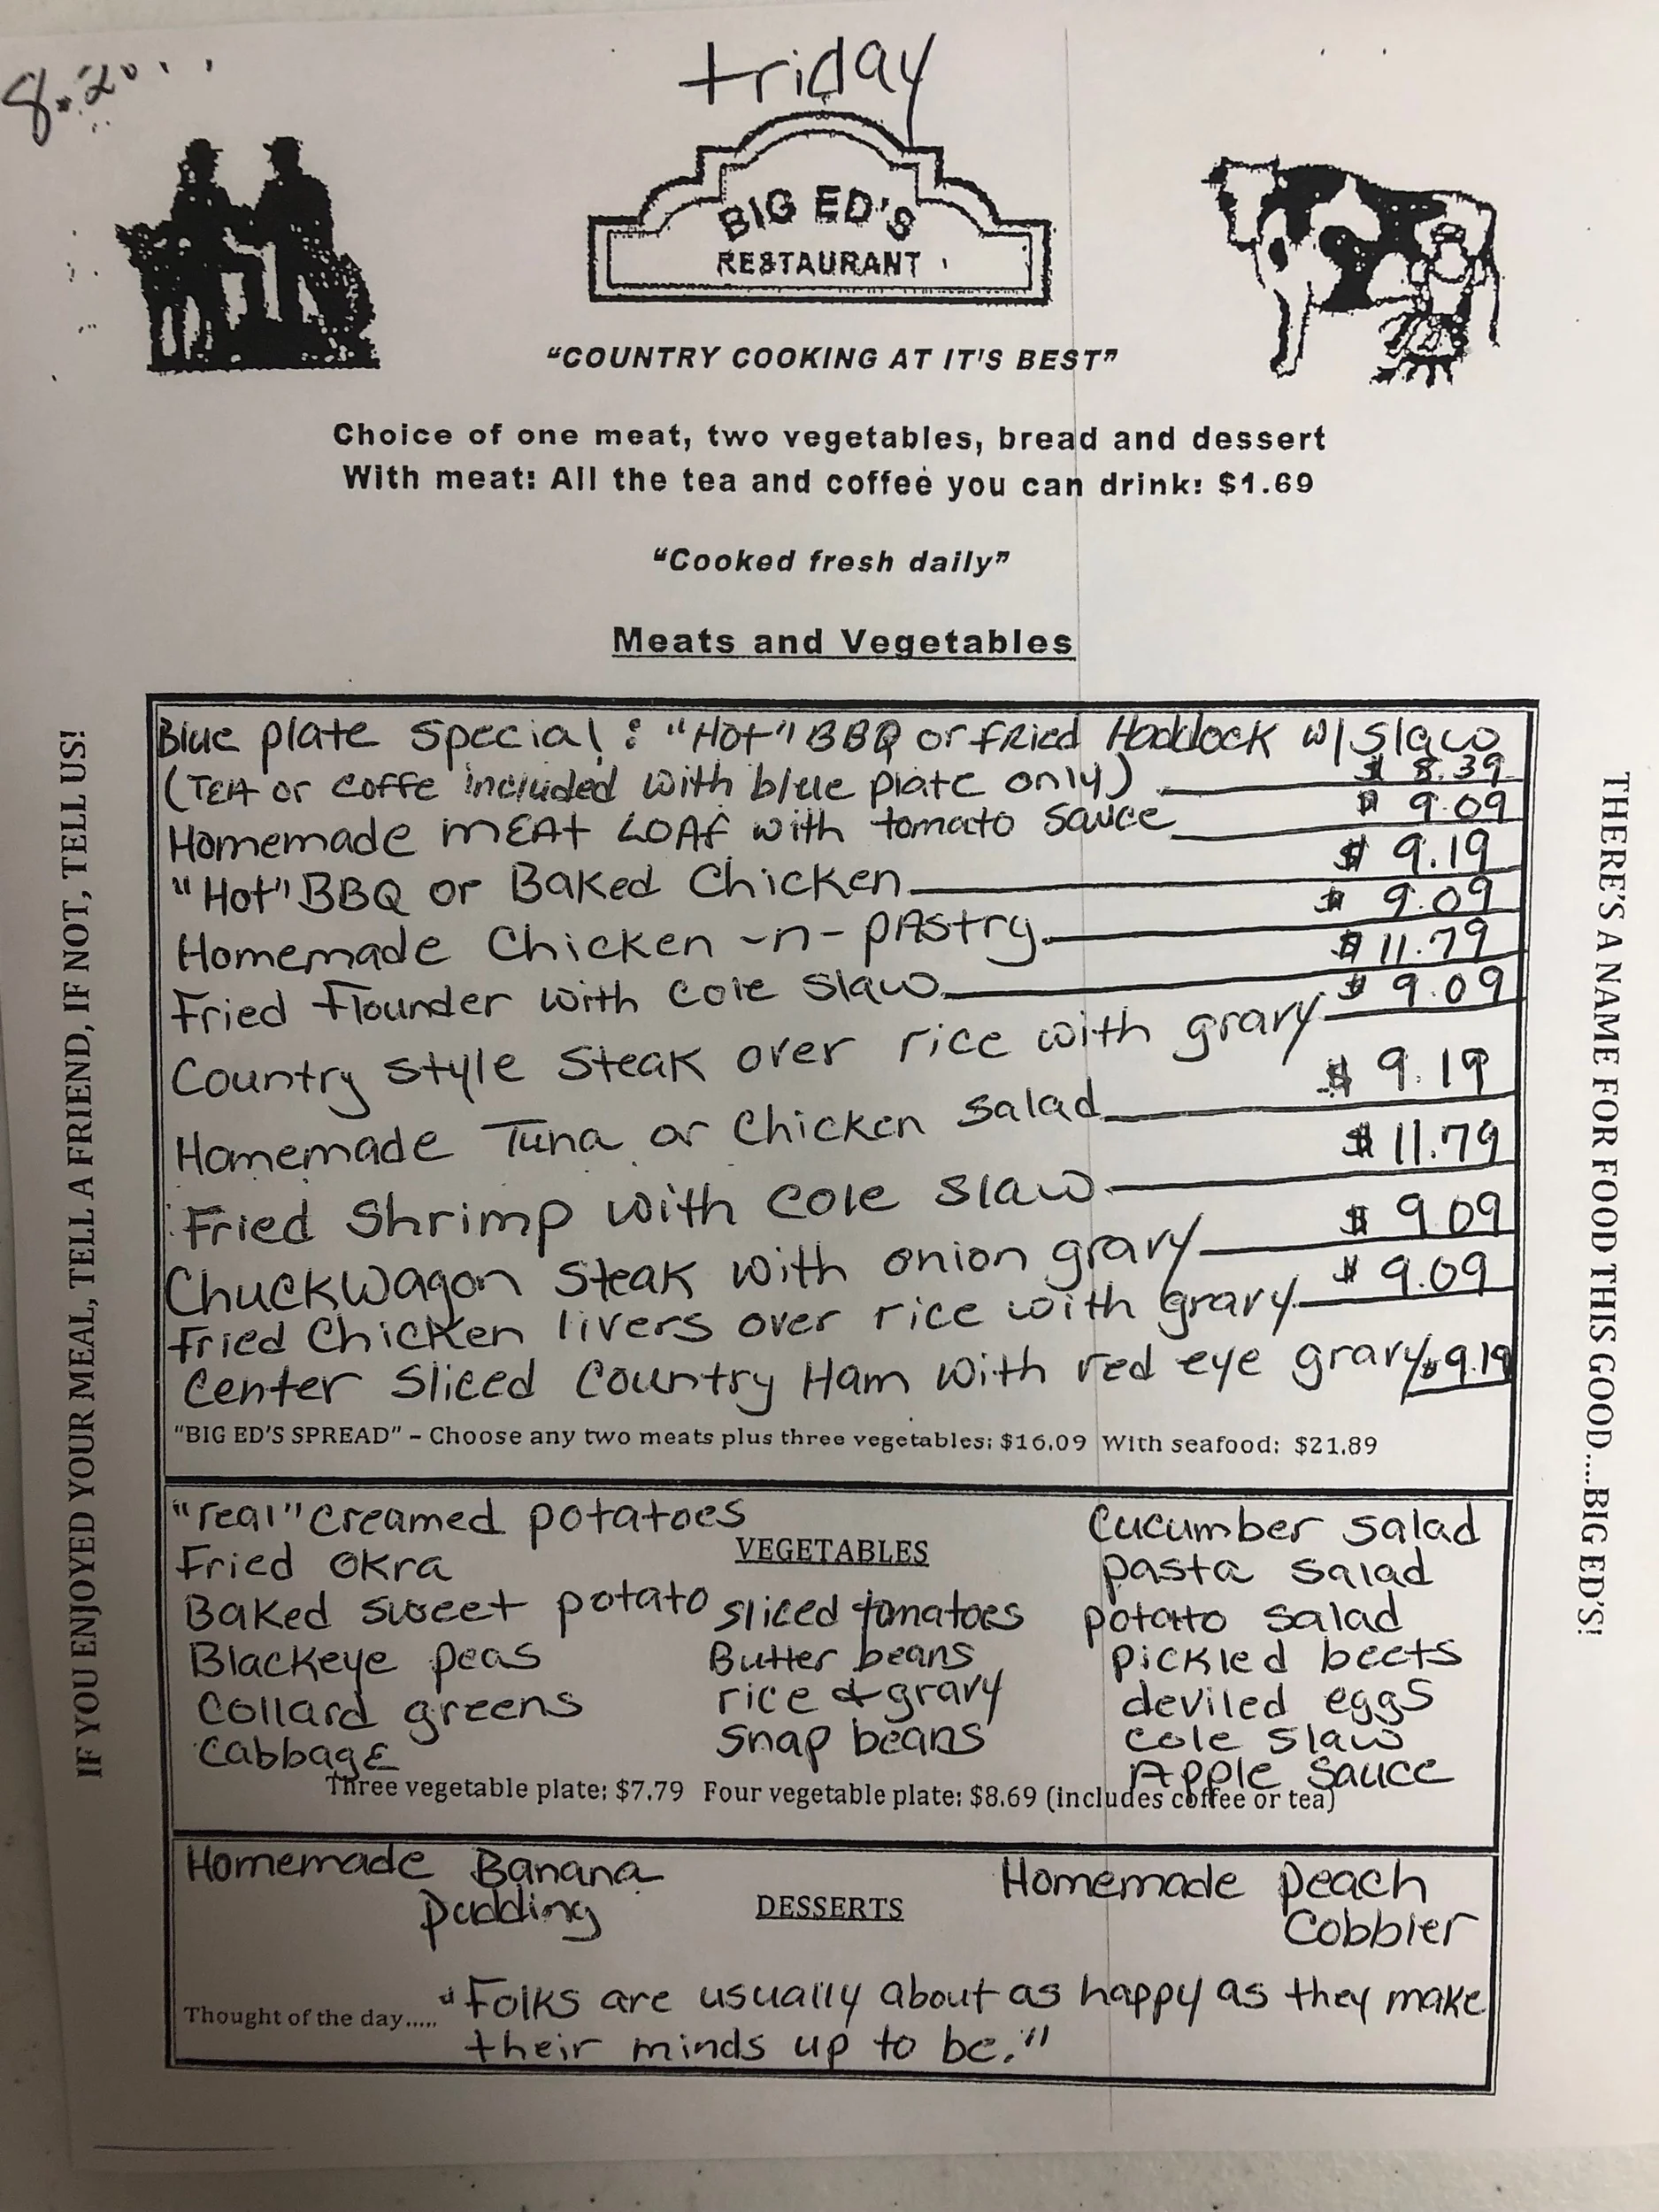 8.20
Friday
BIG ED'S
RESTAURANT
"COUNTRY COOKING AT IT'S BEST"
Choice of one meat, two vegetables, bread and dessert
With meat: All the tea and coffee you can drink: $1.69
"Cooked fresh daily"
Meats and Vegetables
IF YOU ENJOYED YOUR MEAL, TELL A FRIEND, IF NOT, TELL US!
THERE'S A NAME FOR FOOD THIS GOOD....BIG ED'S!
Blue plate special: "Hot" BBQ or fried Haddock w/ slaw
(TEA or coffe included with blue plate only) $ 8.39
Homemade mEAt LOAf with tomato sauce $ 9.09
"Hot" BBQ or Baked Chicken $ 9.19
Homemade Chicken -n- pAstry $ 9.09
Fried Flounder with Cole slaw $ 11.79
Country style steak over rice with gravy $ 9.09
Homemade Tuna or Chicken salad $ 9.19
Fried Shrimp with Cole slaw $ 11.79
Chuckwagon steak with onion gravy $ 9.09
Fried Chicken livers over rice with gravy $ 9.09
Center Sliced Country Ham with red eye gravy $9.19
"BIG ED'S SPREAD" – Choose any two meats plus three vegetables: $16.09 With seafood: $21.89
VEGETABLES
"real" creamed potatoes
Fried okra
Baked sweet potato
Blackeye peas
Collard greens
Cabbage
sliced tomatoes
Butter beans
rice & gravy
snap beans
Cucumber salad
pasta salad
potato salad
pickled beets
deviled eggs
cole slaw
Apple sauce
Three vegetable plate: $7.79 Four vegetable plate: $8.69 (includes coffee or tea)
DESSERTS
Homemade Banana
pudding
Homemade peach
Cobbler
Thought of the day..... "Folks are usually about as happy as they make
their minds up to be."